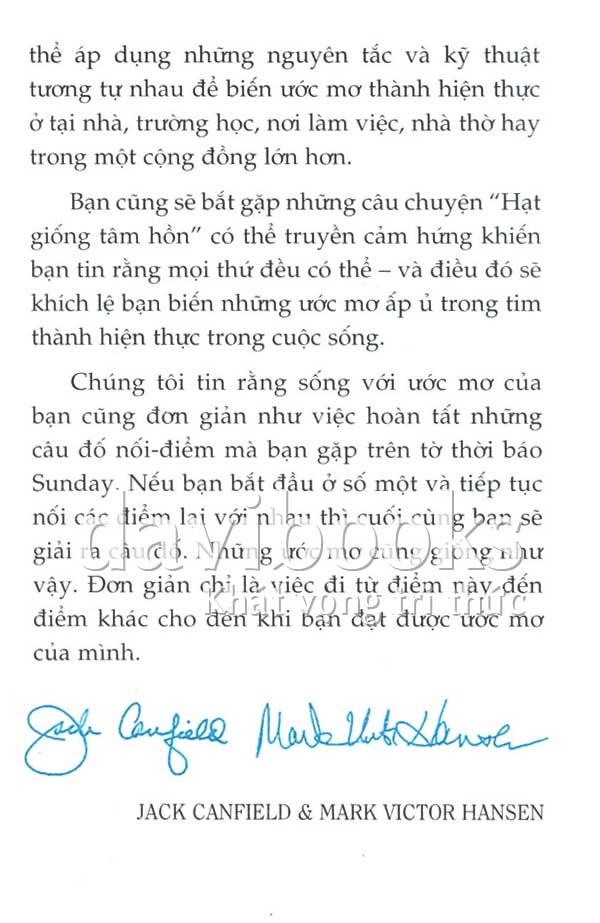 thể áp dụng những nguyên tắc và kỹ thuật
tương tự nhau để biến ước mơ thành hiện thực
ở tại nhà, trường học, nơi làm việc, nhà thờ hay
trong một cộng đồng lớn hơn.
Bạn cũng sẽ bắt gặp những câu chuyện “Hạt
giống tâm hồn” có thể truyền cảm hứng khiến
bạn tin rằng mọi thứ đều có thể – và điều đó sẽ
khích lệ bạn biến những ước mơ ấp ủ trong tim
thành hiện thực trong cuộc sống.
Chúng tôi tin rằng sống với ước mơ của
bạn cũng đơn giản như việc hoàn tất những
câu đố nối-điểm mà bạn gặp trên tờ thời báo
Sunday. Nếu bạn bắt đầu ở số một và tiếp tục
nối các điểm lại với nhau thì cuối cùng bạn sẽ
giải ra câu đố. Những ước mơ cũng giống như
davibooks
vậy. Đơn giản chỉ là việc đi từ điểm này đến
Khát vọng tri thức
điểm khác cho đến khi bạn đạt được ước mơ
của mình.
Jack Canfield Mark Victor Hansen
JACK CANFIELD & MARK VICTOR HANSEN